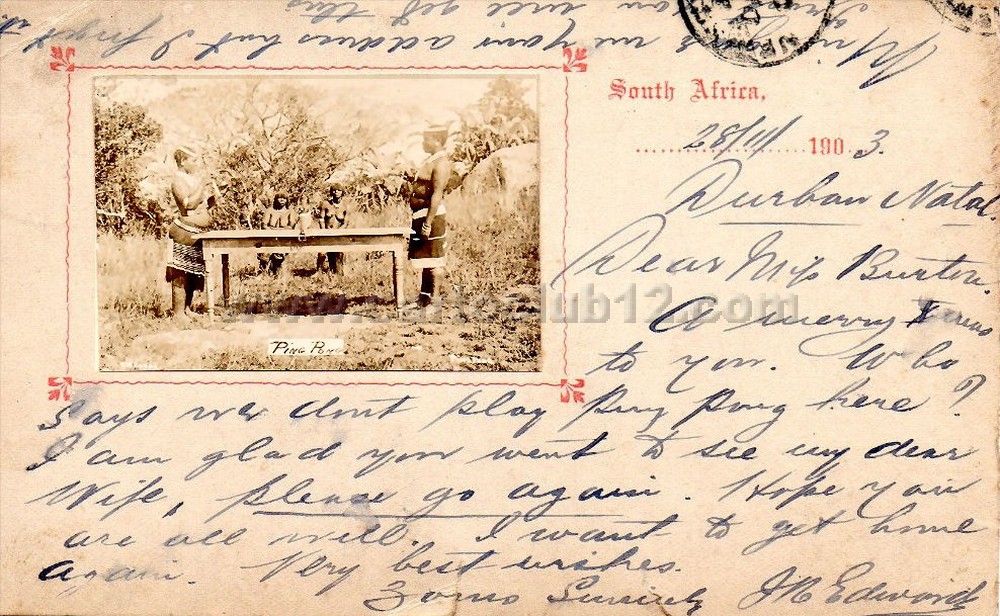 South Africa,
28/11/ 1903.
Durban Natal.
Dear Miss Burton.
A merry Xmas
to you. Who
Says we dont play ping pong here?
I am glad you went to see my dear
Wife, please go again. Hope you
are all well. I want to get home
again. Very best wishes.
Yours Sincerely J Edwards
PING PONG
your address but I forget it
you get this
www.club12.com